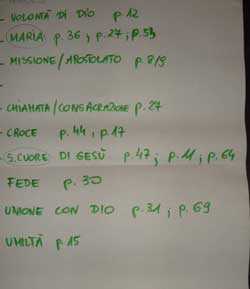 - VOLONTÀ DI DIO p. 12
- MARIA p. 36, p. 27, p. 53
- MISSIONE/APOSTOLATO p. 8/9
- CHIAMATA/CONSACRAZIONE p. 27
- CROCE p. 44, p. 17
- S. CUORE DI GESÙ p. 47; p. 11; p. 64
FEDE p. 30
UNIONE CON DIO p. 31; p. 69
UMILTÀ p. 15